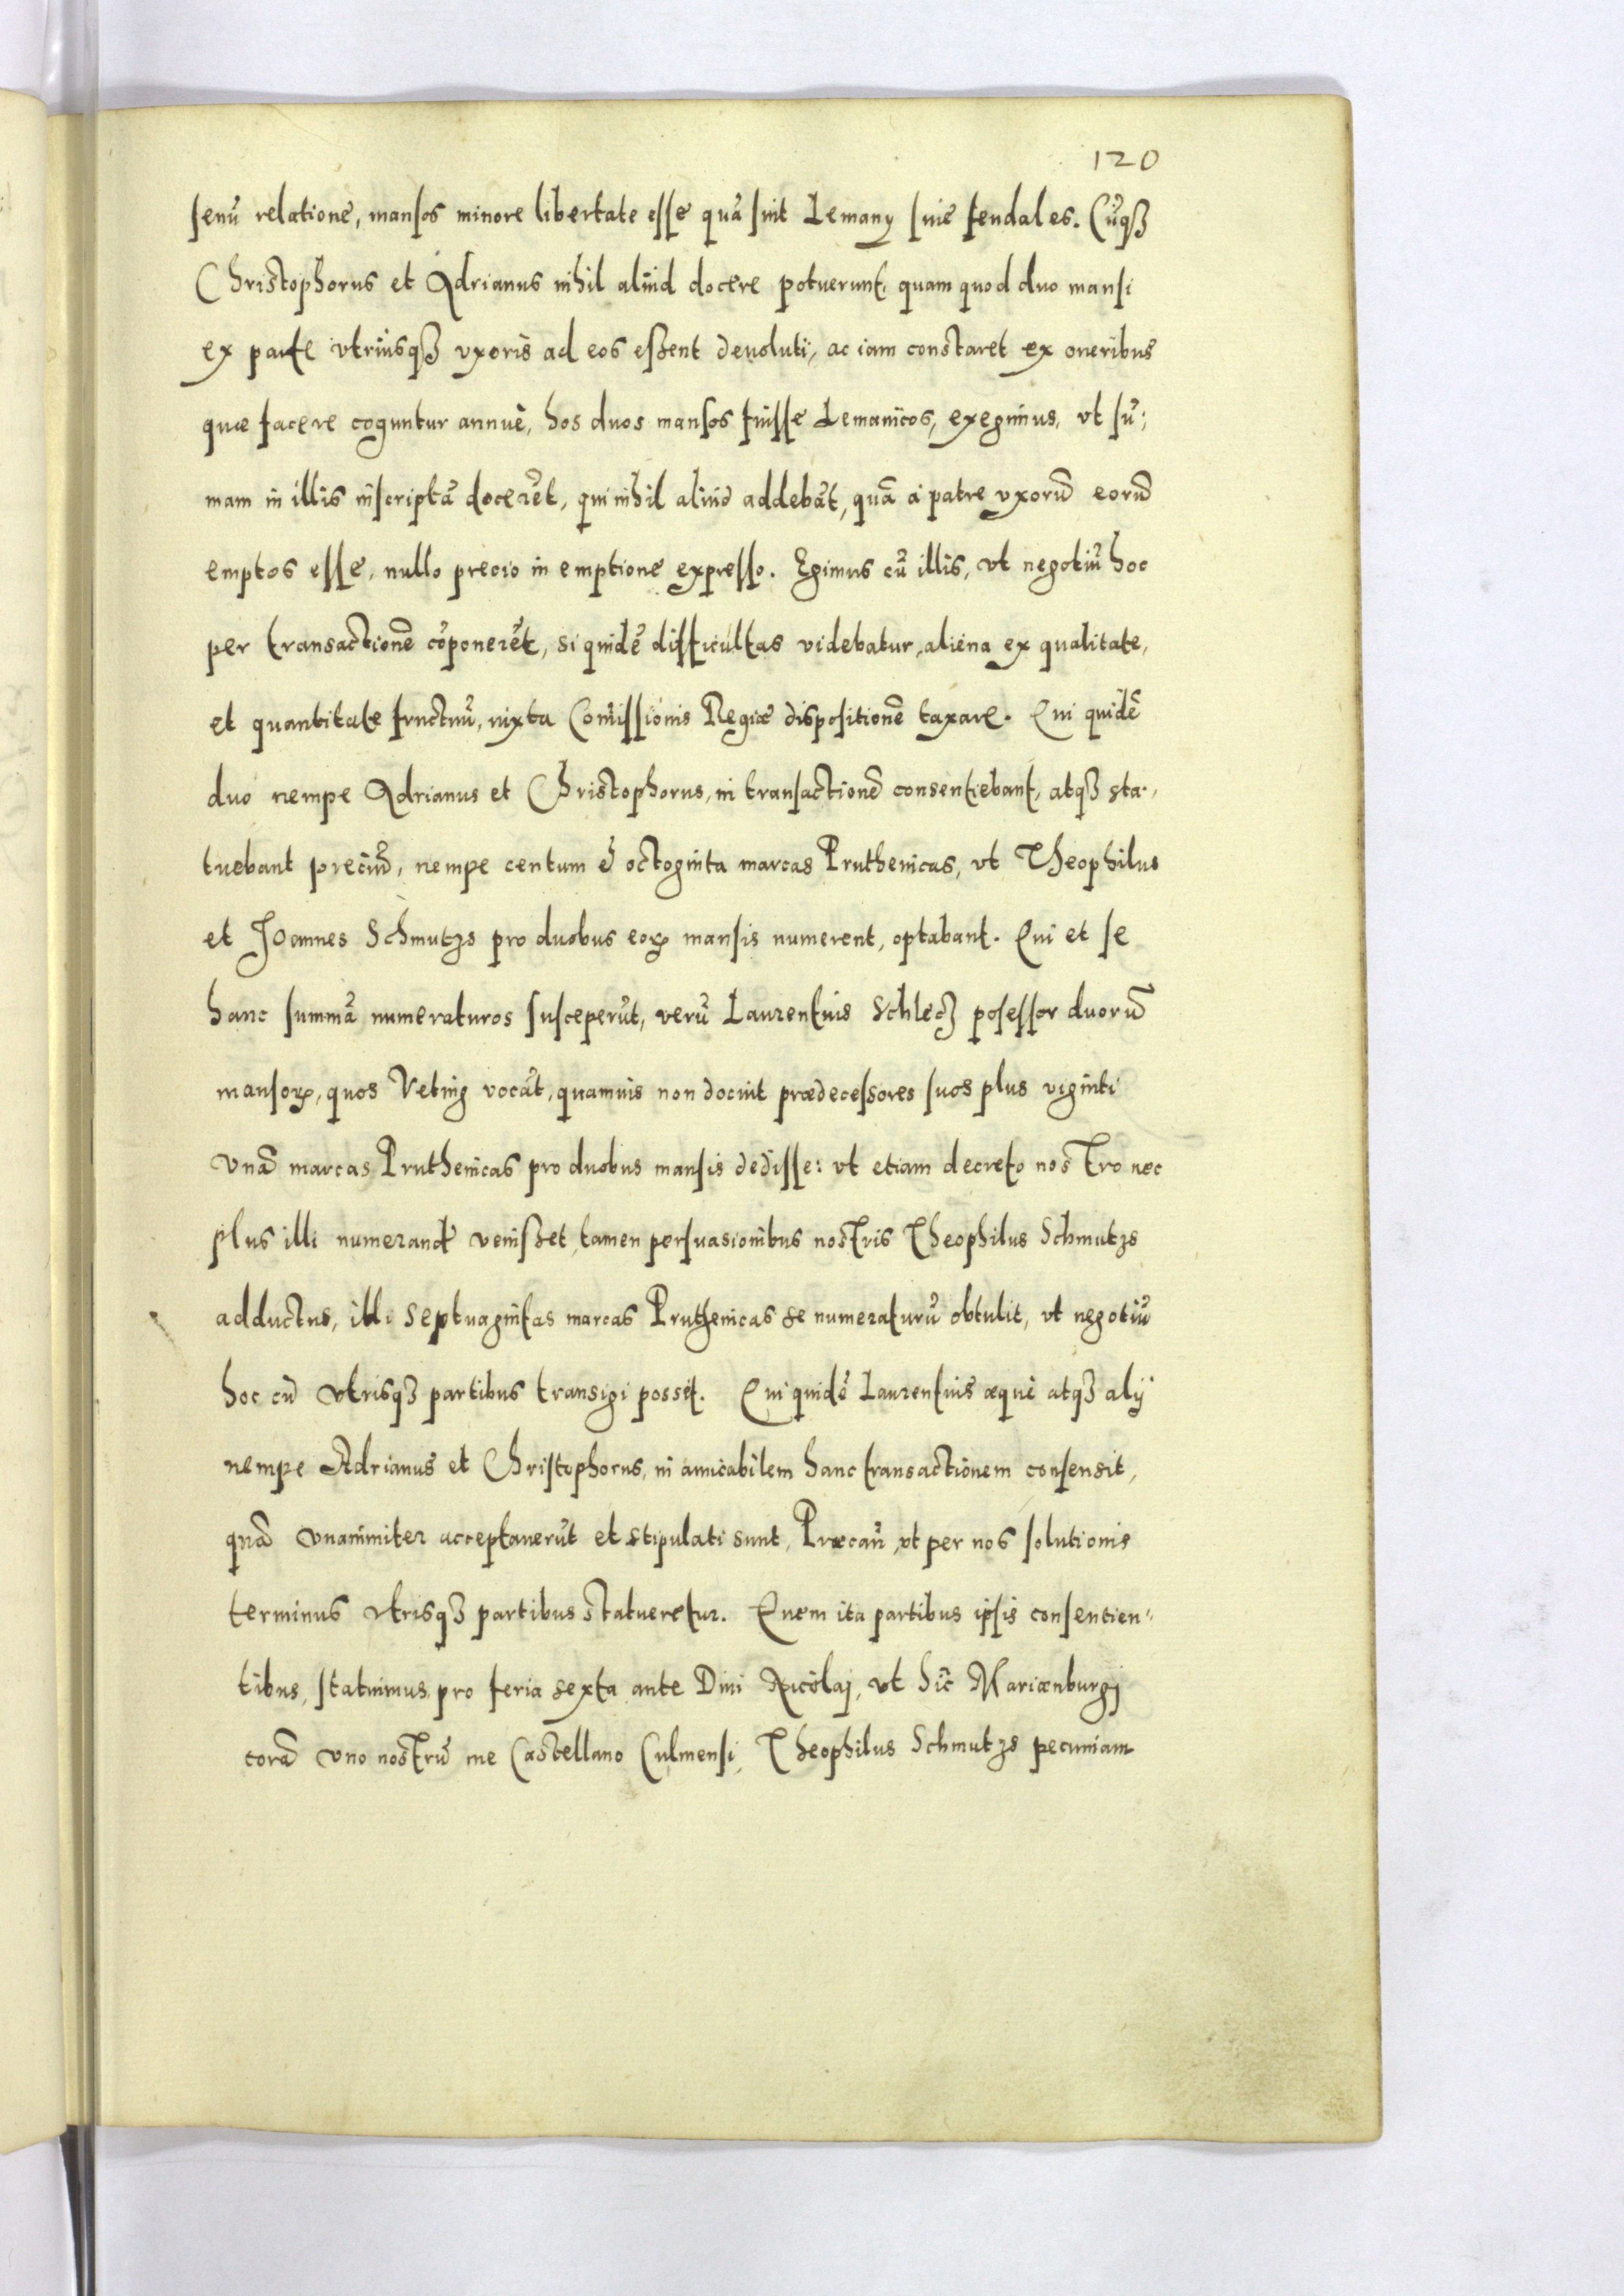 120
senũ relatione, mansos minore libertate esse quã sint Lemany siue feudales. Cũqȝ
Christophorus et Adrianus nihil aliud docere potuerunt, quam quod duo mansi
ex parte vtriusqȝ vxoris ad eos essent deuoluti, ac iam constaret ex oneribus
quæ facere coguntur annuè, hos duos mansos fuisse Lemanicos, exegimus, vt sũ:
mam in illis inscriptã docerẽt, qui nihil aliud addebãt, quã a patre vxorũ eorũ
emptos esse, nullo precio in emptione expresso. Egimus cũ illis, vt negotiũ hoc
per transactionẽ cõponerẽt, si quidẽ difficultas videbatur, aliena ex qualitate,
et quantitate fructuũ, iuxta Comissionis Regiæ dispositionẽ taxare. Qui quidẽ
duo nempe Adrianus et Christophorus, in transactionẽ consentiebant, atqȝ sta-
tuebant preciũ, nempe centum & octoginta marcas Pruthenicas, vt Theophilus
et Joannes Schmutzs pro duobus eoꝝ mansis numerent, optabant. Qui et se
hanc summã numeraturos susceperũt, verũ Laurentius Schlecȝ posessor duorũ
mansoꝝ, quos Veting vocãt, quamuis non docuit prædecessores suos plus viginti
vnã marcas Pruthenicas pro duobus mansis dedisse: vt etiam decreto nostro nec
plus illi numerand' venisset, tamen persuasionibus nostris Theophilus Schmutzs
adductus, illi septuagintas marcas Pruthenicas se numeraturũ obtulit, vt negotiũ
hoc cũ vtrisqȝ partibus transigi possit. Qui quidẽ Laurentius æquè atqȝ alij
nempe Adrianus et Christophorus, in amicabilem hanc transactionem consensit,
quã vnanimiter acceptauerũt et stipulati sunt, Præcañ, vt per nos solutionis
terminus vtrisqȝ partibus statueretur. Quem ita partibus ipsis consentien-
tibus, statuimus pro feria sexta ante Diui Nicolaj, vt hic Mariænburgj
corã vno nostrũ me Castellano Culmensi, Theophilus Schmutzs pecuniam